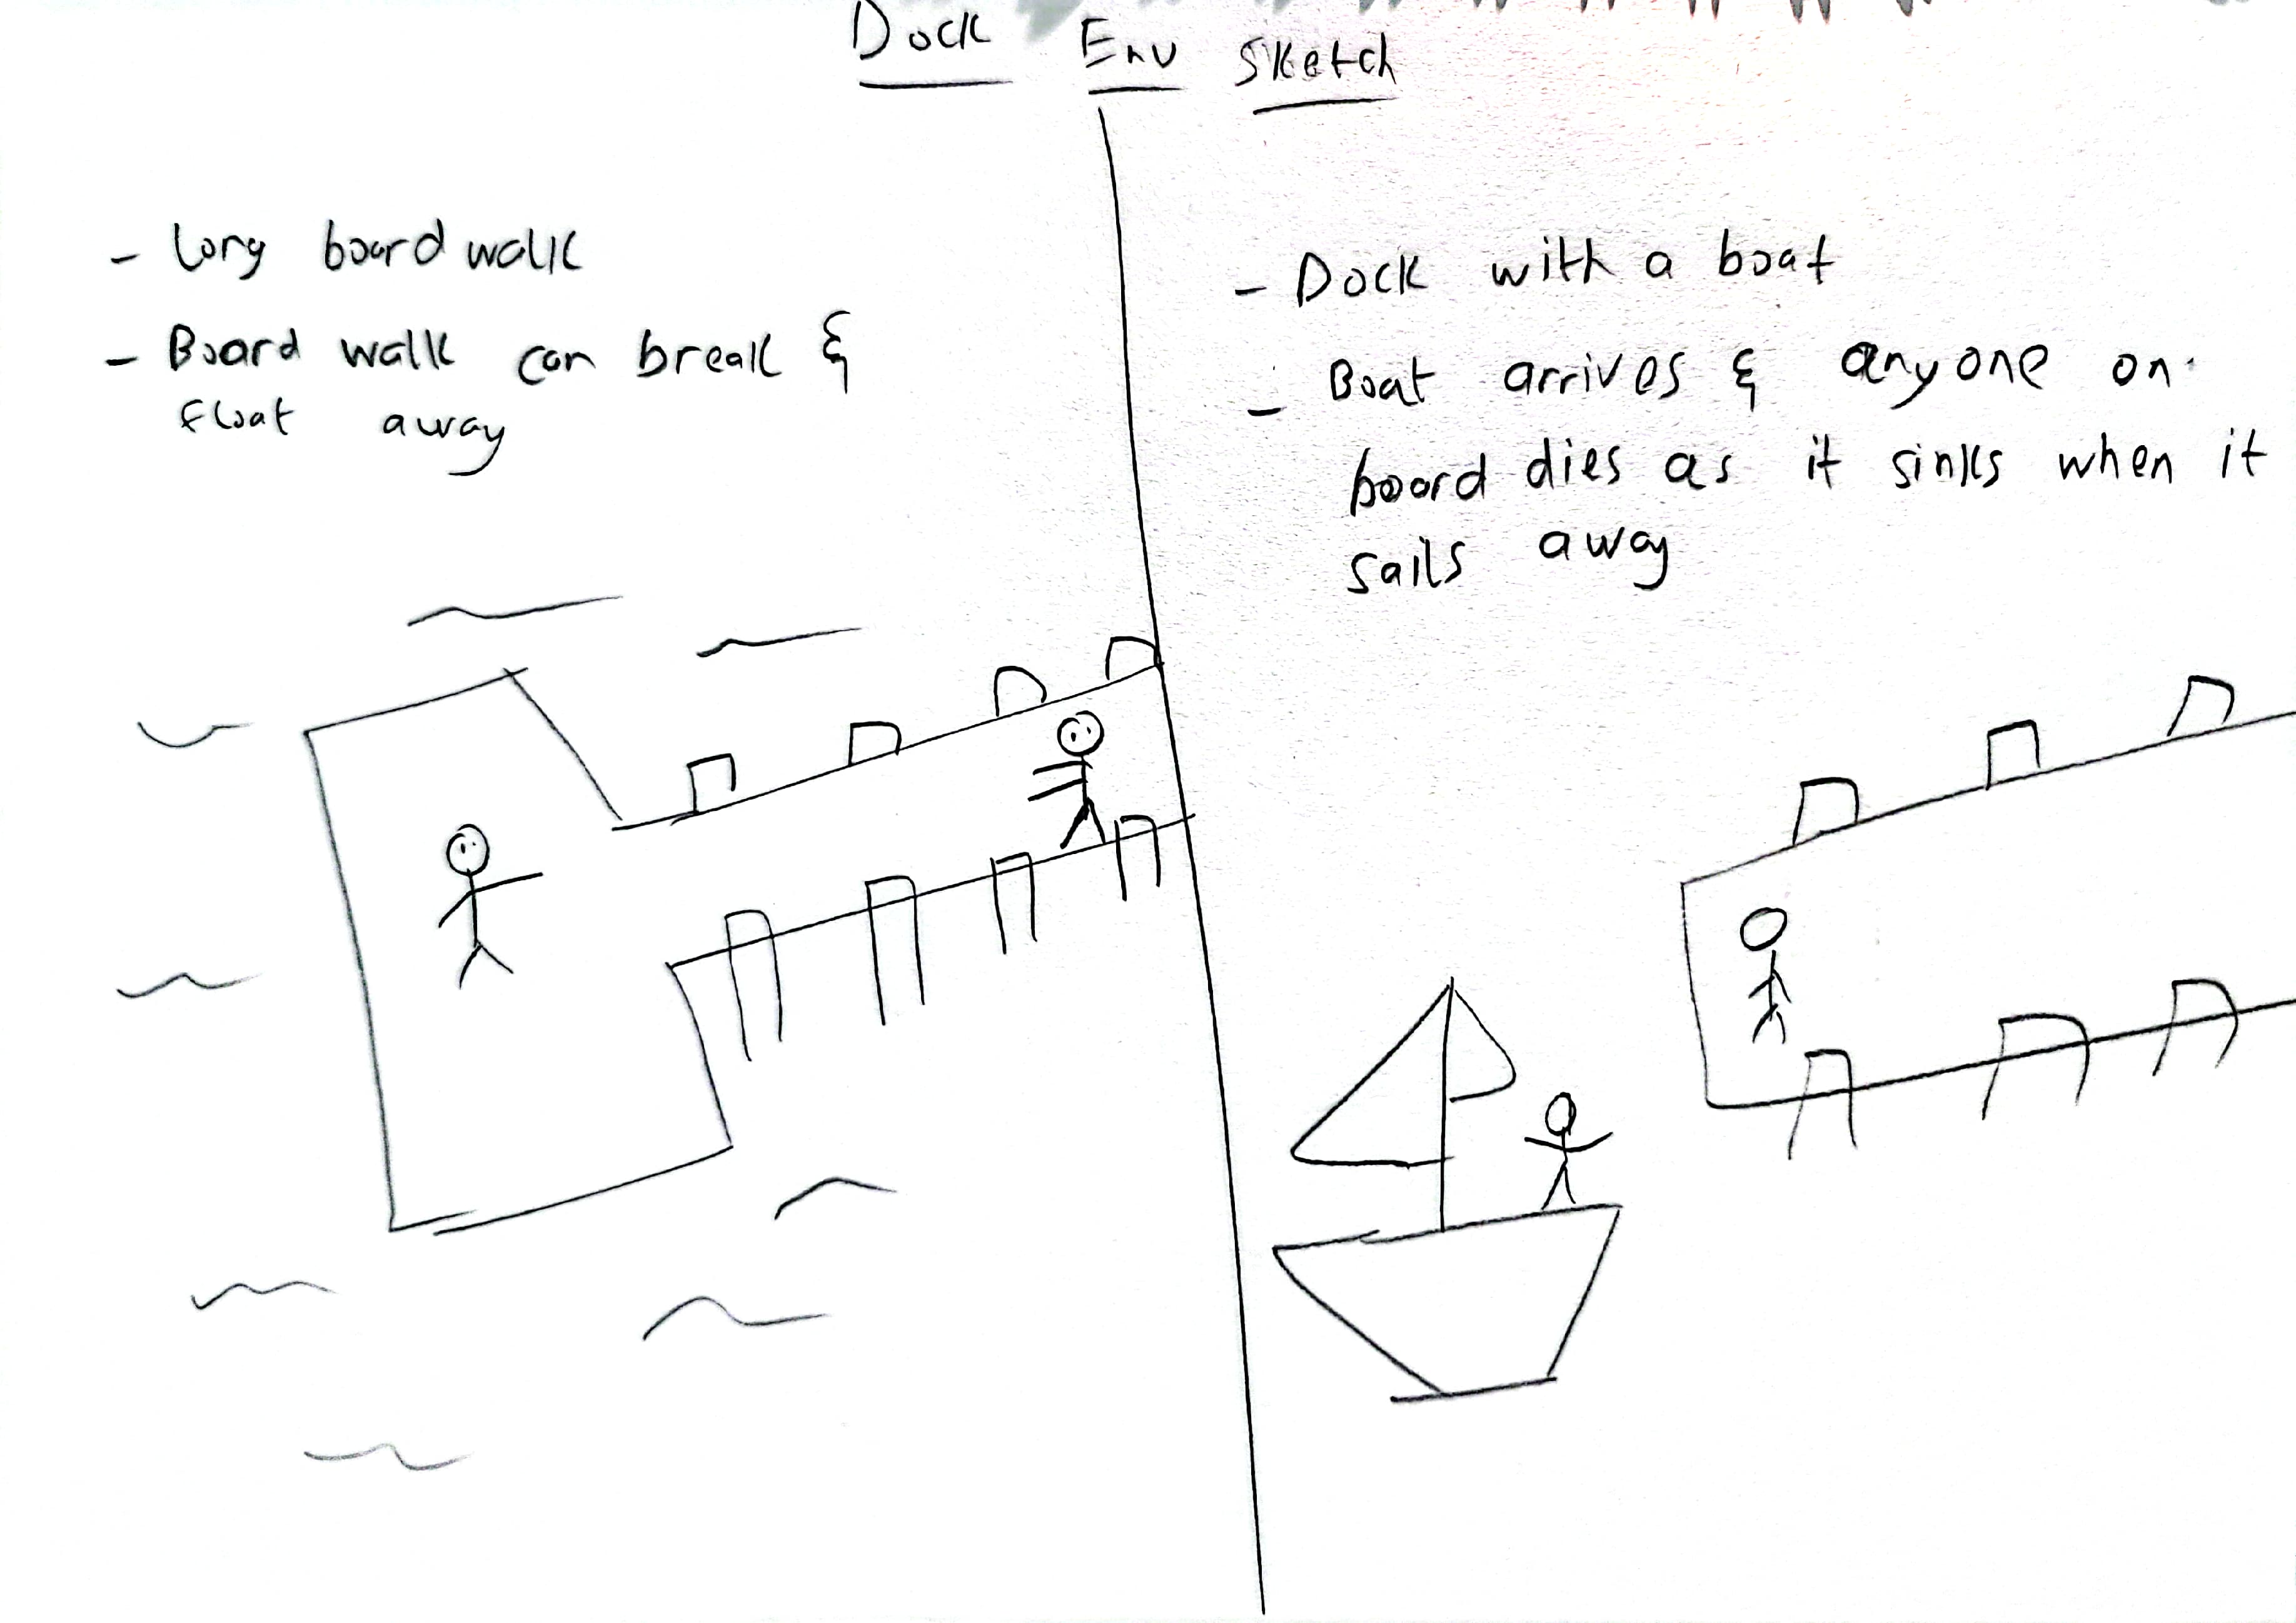 Dock Env Sketch
- Long board walk
- Board walk can break &
float away
- Dock with a boat
- Boat arrives & anyone on
board dies as it sinks when it
sails away